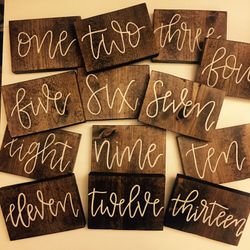 one two three
four
five six seven
eight nine ten
eleven twelve thirteen